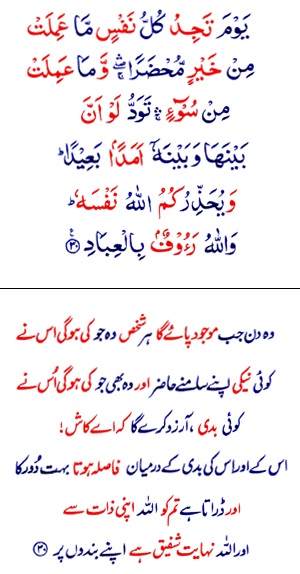 يَوْمَ تَجِدُ كُلُّ نَفْسٍ مَّا عَمِلَتْ
مِنْ خَيْرٍ مُّحْضَرًا ۛۖۚ وَّمَا عَمِلَتْ
مِنْ سُوْٓءٍ ۛۚ تَوَدُّ لَوْ اَنَّ
بَيْنَهَا وَبَيْنَهٗۤ اَمَدًاۢ بَعِيْدًا ؕ
وَيُحَذِّرُكُمُ اللهُ نَفْسَهٗ ؕ
وَاللهُ رَءُوْفٌۢ بِالْعِبَادِ ۟﴿۳۰﴾
وہ دن جب موجود پائے گا ہر شخص وہ جو کی ہوگی اس نے
کوئی نیکی اپنے سامنے حاضر اور وہ بھی جو کی ہوگی اُس نے
کوئی بدی ، آرزو کرے گا کہ اے کاش!
اس کے اور اس کی بدی کے درمیان فاصلہ ہوتا بہت دُور کا
اور ڈراتا ہے تم کو اللہ اپنی ذات سے
اور اللہ نہایت شفیق ہے اپنے بندوں پر ﴿۳۰﴾